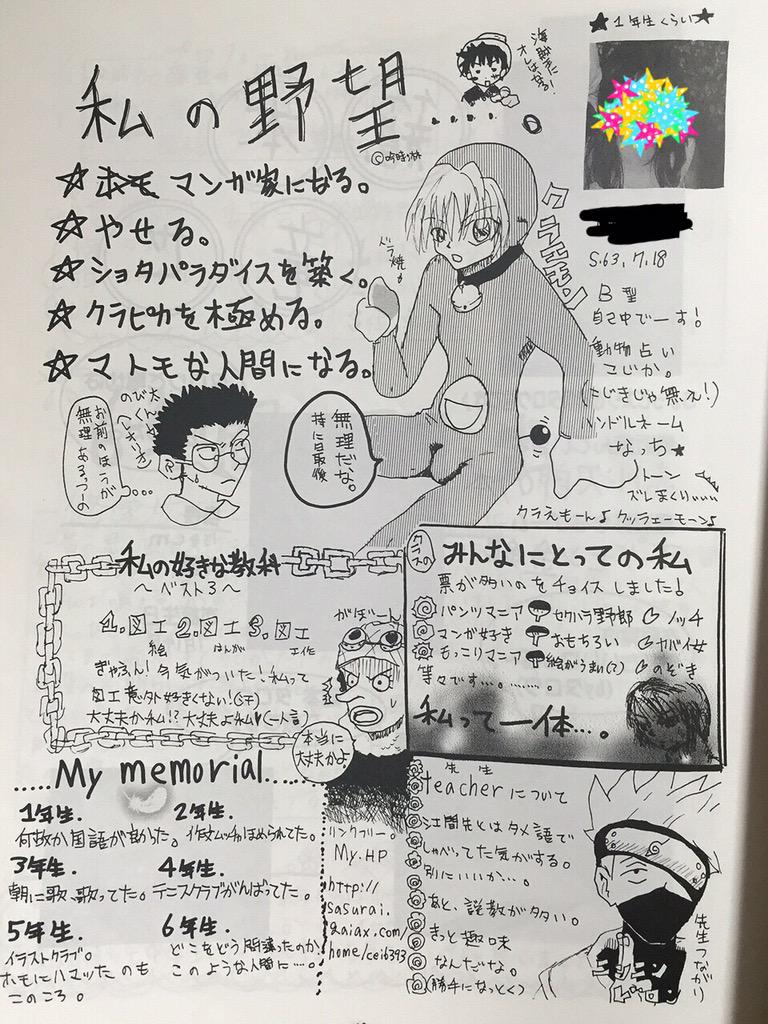 ★1年生くらい★
海賊王に
オレはなる!
私の野望.....。
☆ホモ マンガ家になる。
☆やせる。
☆ショタパラダイスを築く。
☆クラピカを極める。
☆マトモな人間になる。
クラえモン
ドラ焼き
S.63.7.18
B型
自己中でーす!
動物占い
こじか。
(こじきじゃ無ぇ!)
ハンドルネーム
なっち★
トーン
ズレまくりぃぃぃ
クラえもーん♪クッラェーモーン♪
無理だな。
特に最後
のび太くんや
お前のほうが
無理あるっつーの
私の好きな教科
~ベスト3~
1.図工 2.図工 3.図工
絵 はんが 工作
ぎゃふん!今気がついた!私って
図工意外好きくない!(汗)
大丈夫か私!?大丈夫よ私♥(一人言)
がぼーん
本当に
大丈夫かよ
クラスの
みんなにとっての私
票が多いのをチョイスしました♪
パンツマニア セクハラ野郎 ノッチ
マンガ好き おもちろい ヤバイ女
もっこりマニア 絵がうまい(?) のぞき
等々です…。……。
私って一体…。
.....My memorial.....
1年生.
何故か国語が良かった。
2年生.
3年生.
朝に歌、歌ってた。
4年生.
テニスクラブがんばってた。
5年生.
イラストクラブ。
ホモにハマッたのも
このころ。
6年生.
どこをどう間違ったのか
このような人間に…。
リンクフリー。
My.HP
http://
sasurai.
gaiax.com/
home/ceib393
先生
teacherについて
江間先とはタメ語で
しゃべってた気がする。
別にいいか…。
あと、説教が多い。
きっと趣味
なんだな。
(勝手になっとく)
先生つながり